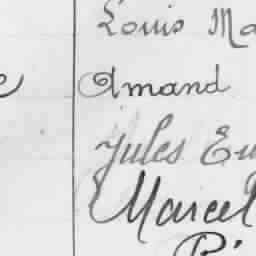 Louis Ma
e Amand
Jules Eu
Marcel